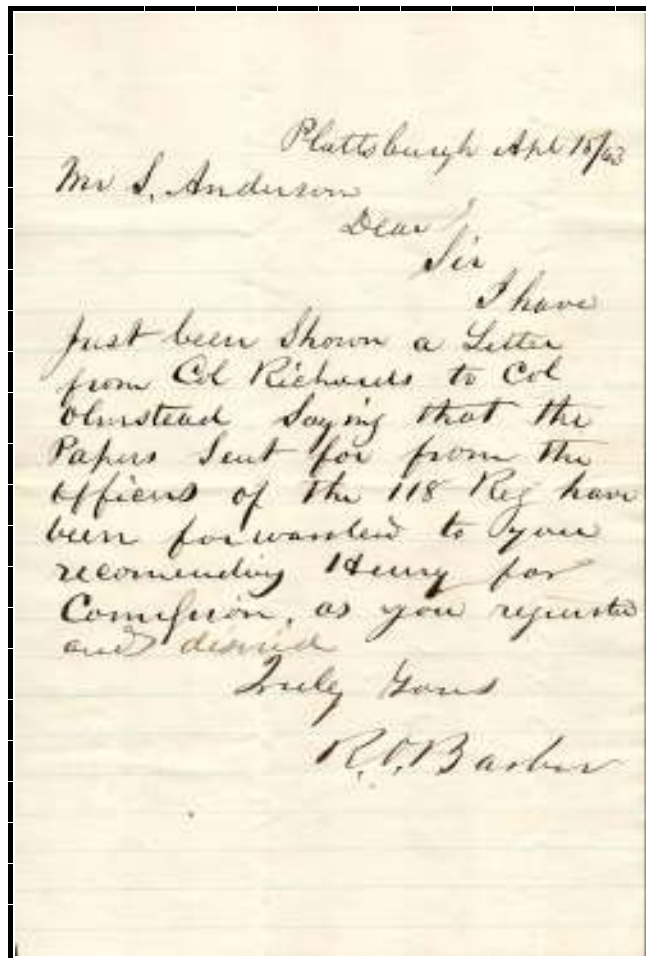 Plattsburgh Apl 15/63
Mr S. Anderson
Dear
Sir
I have
Just been Shown a Letter
from Col Richards to Col
Olmstead Saying that the
Papers Sent for from the
officers of the 118 Reg have
been forwarded to you
recomending Henry for
Comission, as you requested
and desired
Truly Yours
R. O. Barber